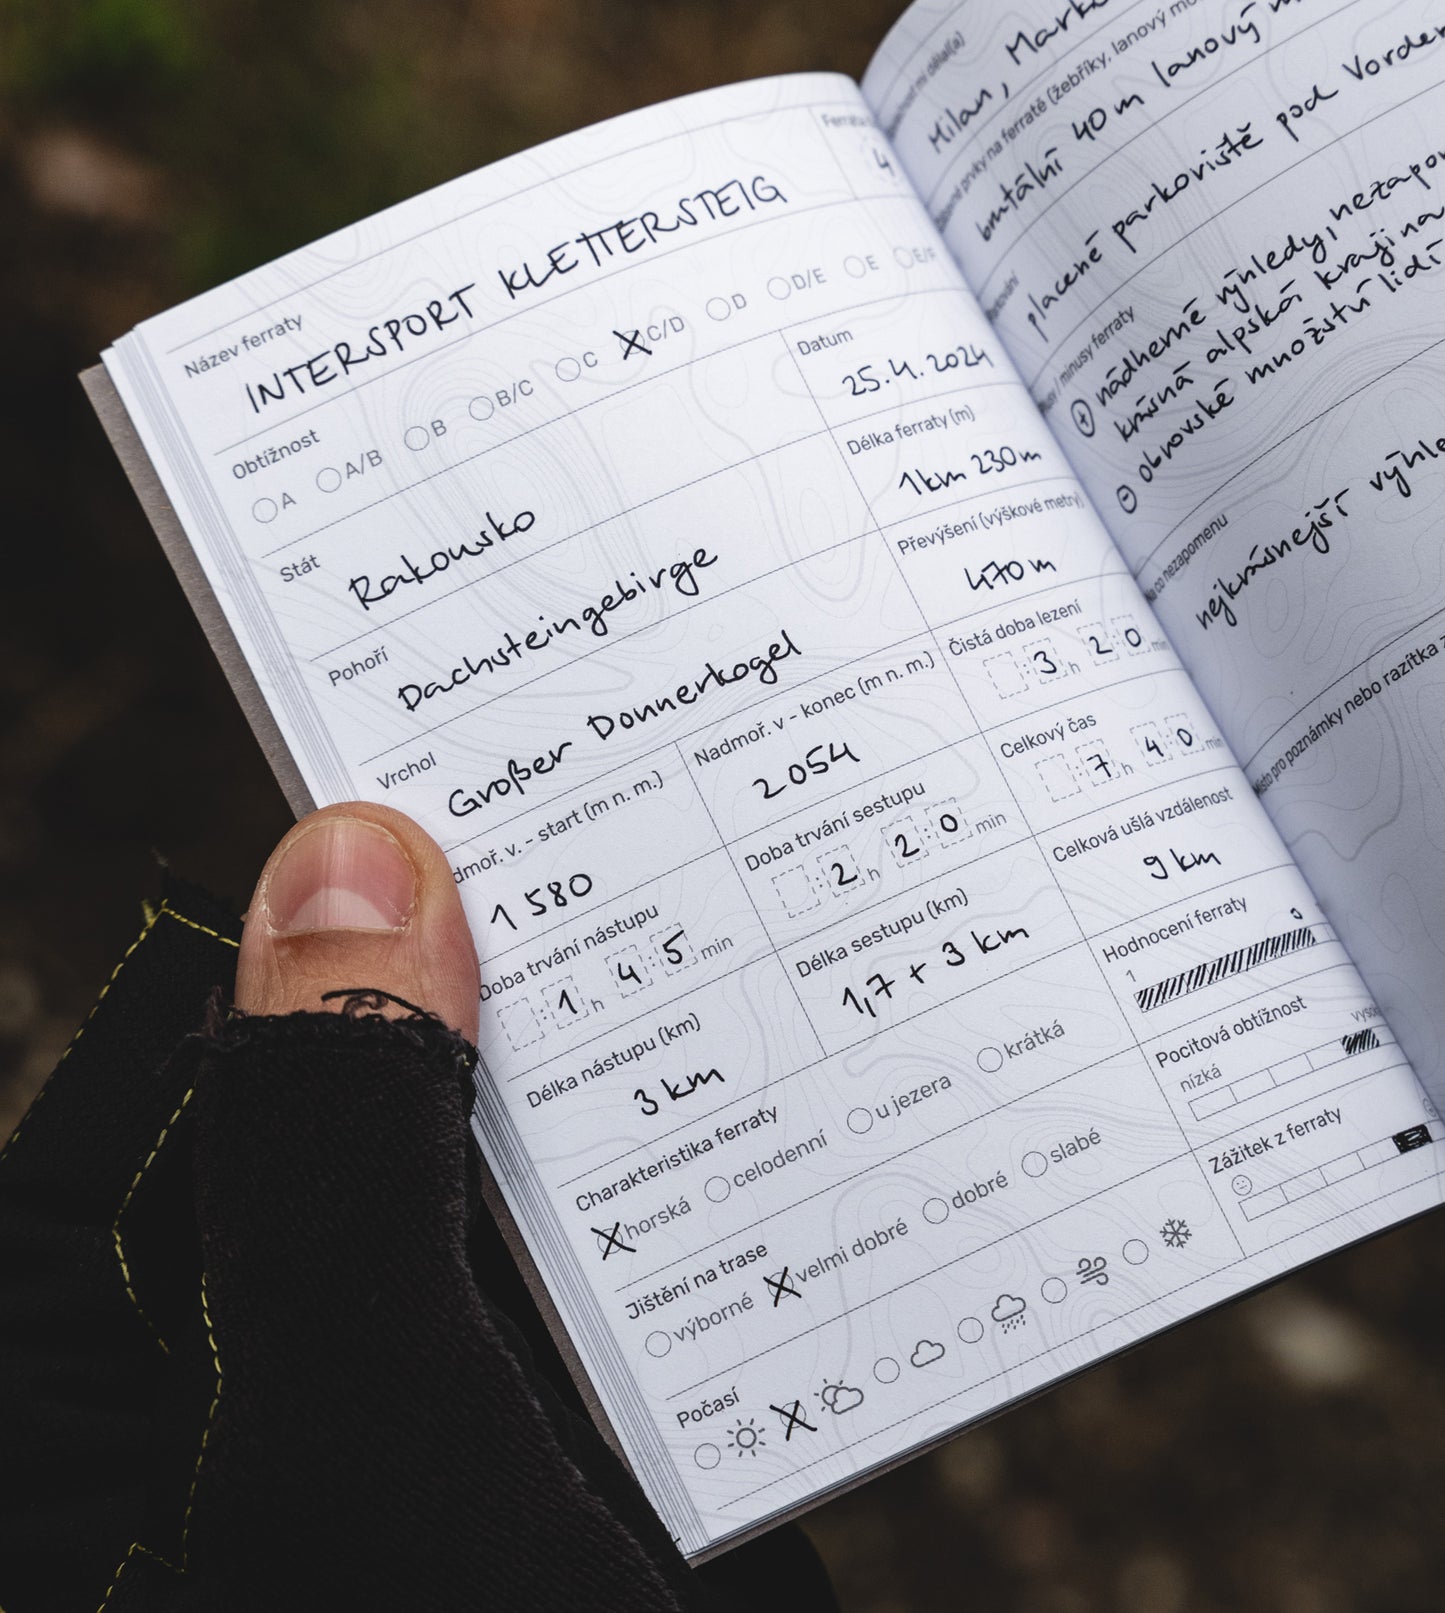 Název ferraty
INTERSPORT KLETTERSTEIG
4
Obtížnost
A A/B B B/C C C/D D D/E E E/F
Stát
Rakousko
Datum
25.4.2024
Délka ferraty (m)
1km 230m
Pohoří
Dachsteingebirge
Převýšení (výškové metry)
470m
Vrchol
Großer Donnerkogel
Čistá doba lezení
3 h 20 min
dmoř. v. - start (m n. m.)
1 580
Nadmoř. v - konec (m n. m.)
2054
Celkový čas
7 h 40 min
Doba trvání nástupu
1 h 45 min
Doba trvání sestupu
2 h 20 min
Celková ušlá vzdálenost
9 km
Délka nástupu (km)
3 km
Délka sestupu (km)
1,7 + 3 km
Hodnocení ferraty
1
Charakteristika ferraty
horská celodenní u jezera krátká
Pocitová obtížnost
nízká
Jištění na trase
výborné velmi dobré dobré slabé
Zážitek z ferraty
Počasí
Milan,
na ferratě (žebříky, lanový
brutální 40m lanový
placené parkoviště pod
/ minusy ferraty
nádherné výhledy,
krásná alpská krajina
obrovské množství lidí
co nezapomenu
nejkrásnější
pro poznámky nebo razítka